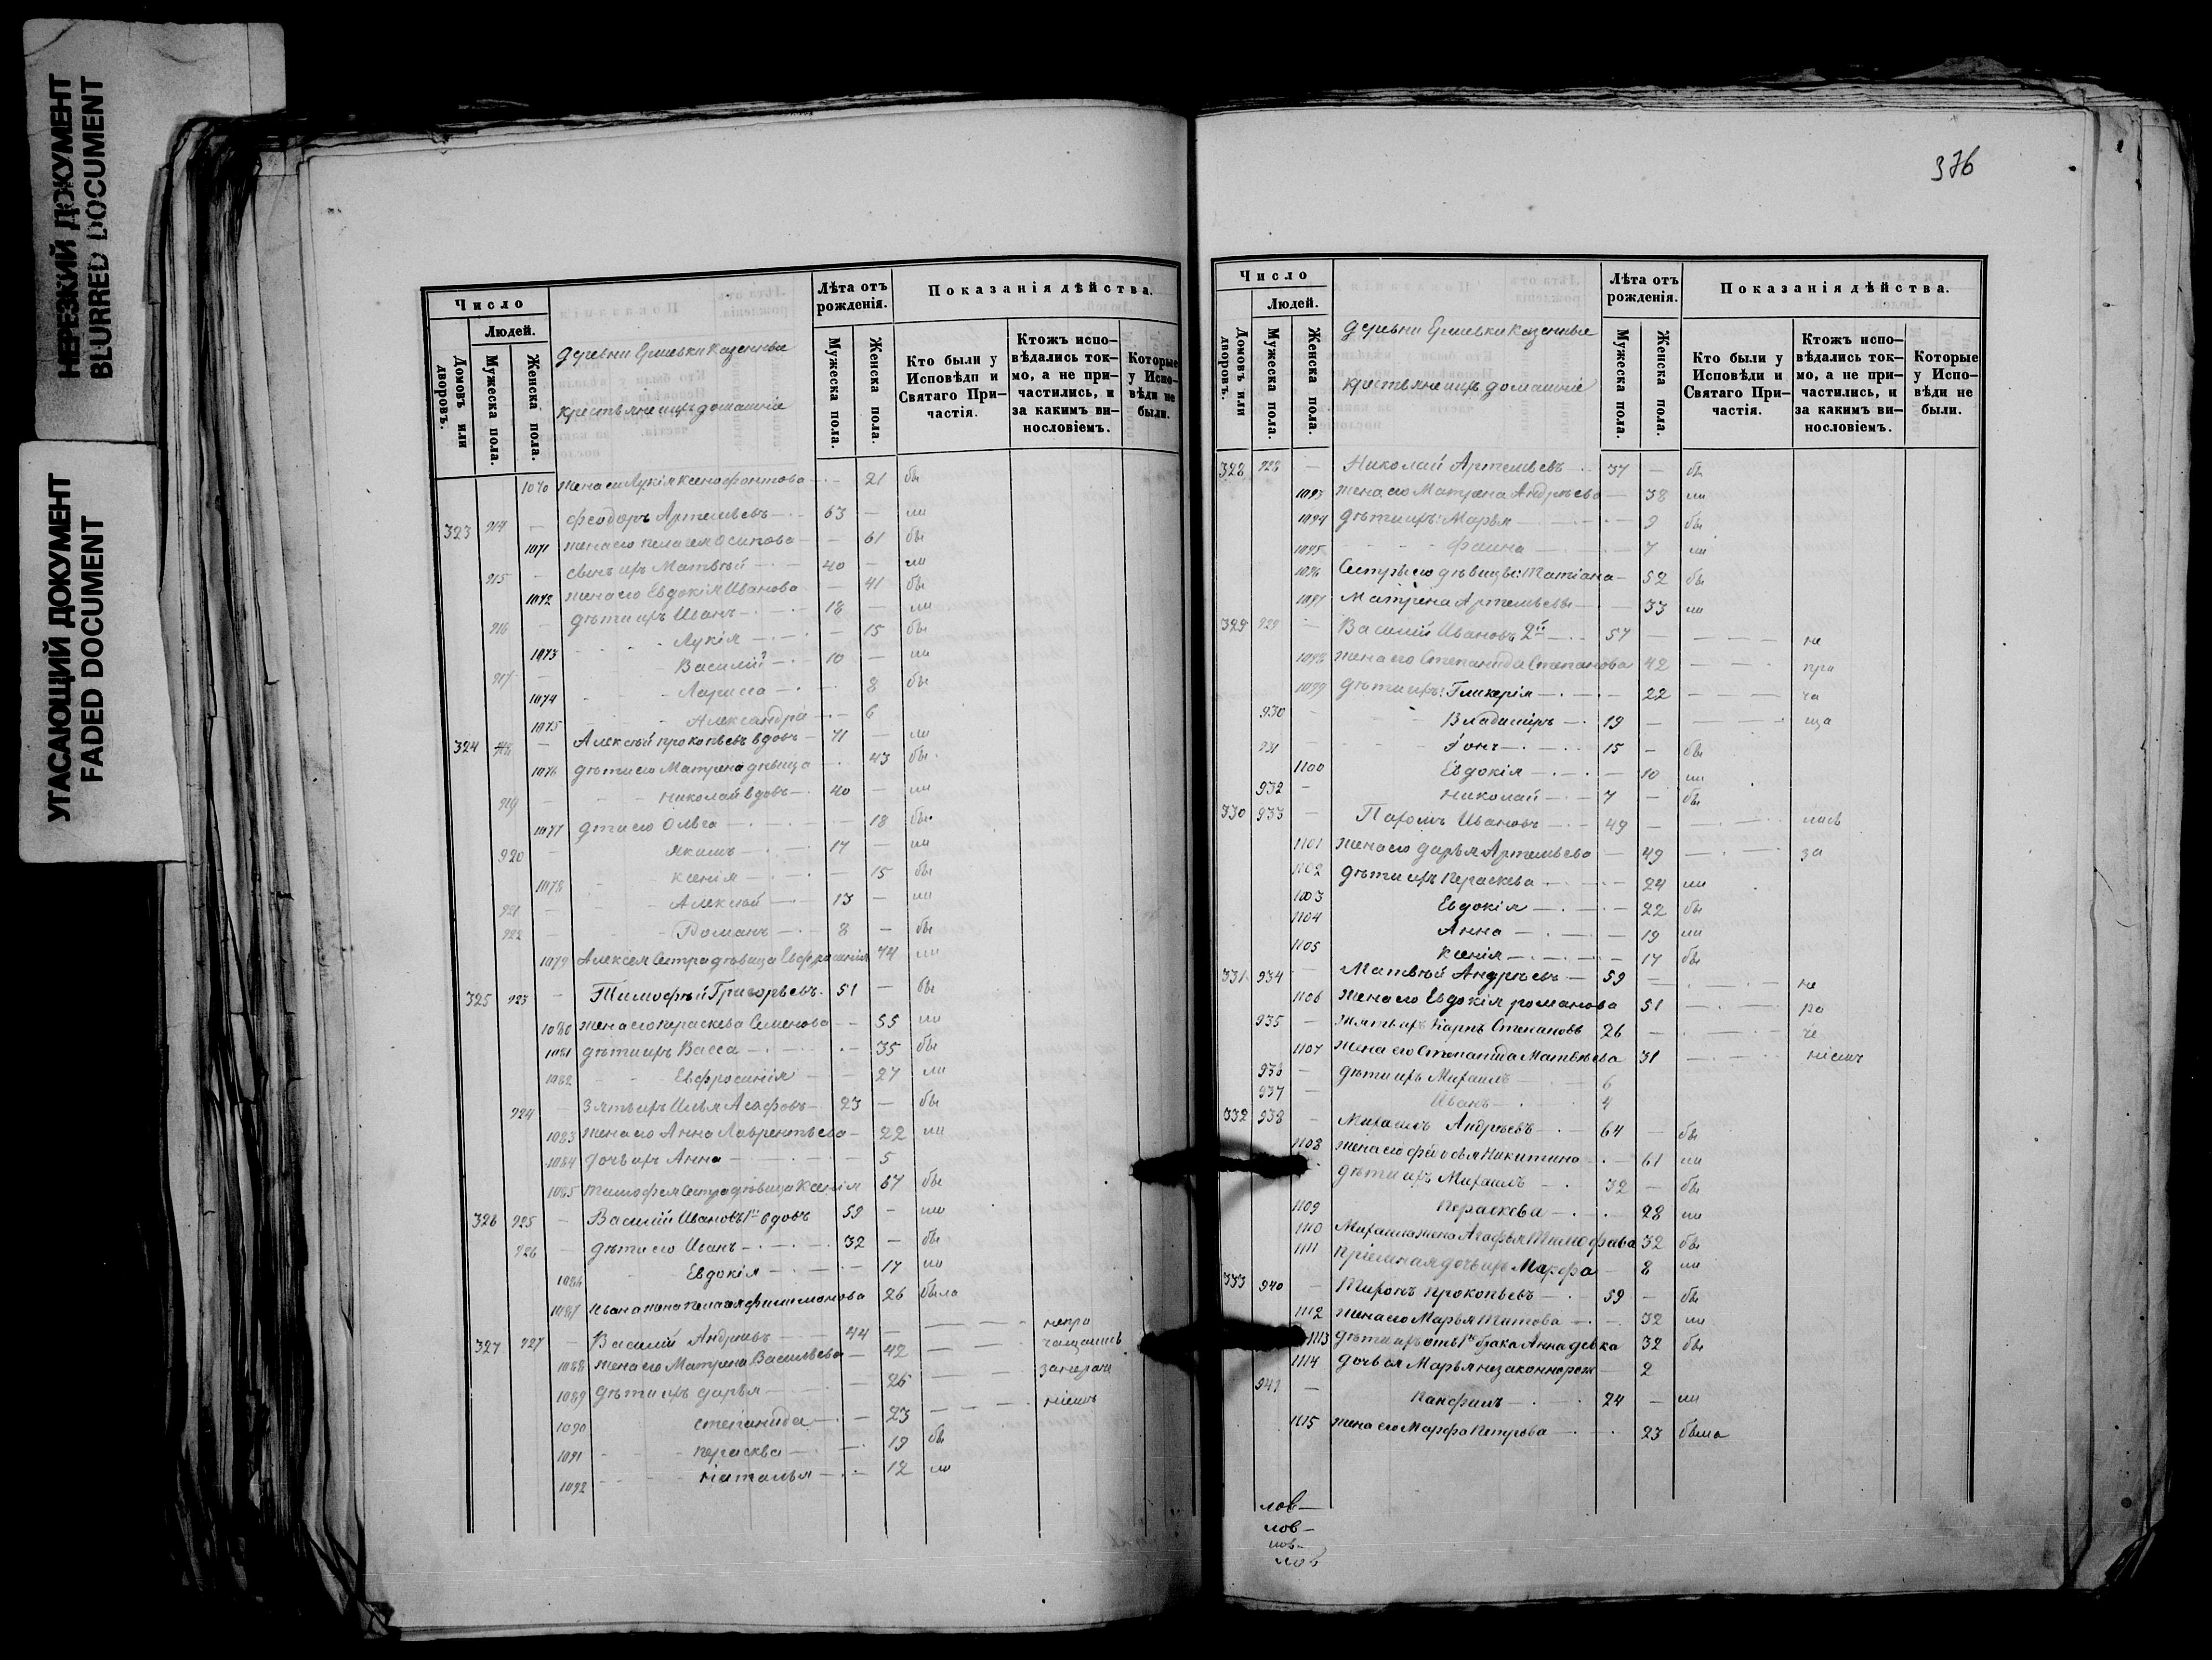 НЕРЕЗКИЙ ДОКУМЕНТ
BLURRED DOCUMENT
УГАСАЮЩИЙ ДОКУМЕНТ
FADED DOCUMENT
Число
Людей.
Домовъ или дворовъ.
Мужеска пола.
Женска пола.
деревни Ершевки казенные
крестьяне ихъ домашніе
Лѣта отъ рожденія.
Мужеска пола.
Женска пола.
Показанія дѣйства.
Кто были у Исповѣди и Святаго При-частія.
Ктожъ испо-вѣдались ток-мо, а не при-частились, и за какимъ ви-нословіемъ.
Которые у Испо-вѣди не были.
1070 жена его Лукія Ксенофонтова 21 бы
323 914 — Феодоръ Артемьевъ 63 — ли
1071 жена его Пелагея Осипова — 61 бы
915 — сынъ ихъ Матвѣй 40 — ли
1072 жена его Евдокія Иванова — 41 бы
916 — дѣти ихъ Иванъ 18 — ли
1073 Лукія — 15 бы
917 — Василій 10 — ли
1074 Лариса — 8 бы
1075 Александра — 6
324 918 — Алексѣй Прокопьевъ вдовъ 71 — ли
1076 дѣти его Матрена дѣвица 43 бы
919 — Николай вдовъ 40 — ли
1077 дти его Ольга — 18 бы
920 — Якимъ 17 — ли
1078 Ксенія — 15 бы
921 — Алексѣй 13 — ли
922 — Романъ 8 — бы
1079 Алексея сестра дѣвица Евфросинія 74 ли
325 923 — Тимофѣй Григорьевъ 51 — бы
1080 жена его Пераскева Семенова — 55 ли
1081 дѣти ихъ Васса — 35 бы
1082 Евфросинія — 27 ли
924 — Зять ихъ Илья Агафовъ 23 — бы
1083 жена его Анна Лаврентьева — 22 ли
1084 дочь ихъ Анна — 5
1085 Тимофея сестра дѣвица Ксенія 67 бы
326 925 — Василій Ивановъ 1й вдовъ 59 — ли
926 — дѣти его Иванъ 32 — бы
1086 Евдокія — 17 ли
1087 Ивана жена Пелагея Филимонова 26 была
327 927 — Василій Андреевъ 44 — непри
1088 жена его Матрена Васильева 42 чащались
1089 дѣти ихъ Дарья — 26 занерачи
1090 Степанида — 23 ніемъ
1091 Пераскева — 19 бы
1092 Наталья — 12 ли
376
Число
Людей.
Домовъ или дворовъ.
Мужеска пола.
Женска пола.
деревни Ершевки казенные
крестьяне ихъ домашніе
Лѣта отъ рожденія.
Мужеска пола.
Женска пола.
Показанія дѣйства.
Кто были у Исповѣди и Святаго При-частія.
Ктожъ испо-вѣдались ток-мо, а не при-частились, и за какимъ ви-нословіемъ.
Которые у Испо-вѣди не были.
328 928 — Николай Артемьевъ 37 — бы
1093 жена его Матрена Андреева — 38 ли
1094 дѣти ихъ: Марья — 9 бы
1095 Фаина — 7 ли
1096 Сестры его дѣвицы: Татіана 52 бы
1097 Матрена Артемьевы — 33 ли
329 929 — Василій Ивановъ 2й 57 — не
1098 жена его Степанида Степанова 42 при
1099 дѣти ихъ: Гликерія — 22 ча
930 Владиміръ 19 — ща
931 Іонъ 15 — бы
1100 Евдокія — 10 ли
932 — Николай 7 — бы
330 933 — Пахомъ Ивановъ 49 — лись
1101 жена его Дарья Артемьева — 49 за
1102 дѣти ихъ Пераскева — 24 ли
1103 Евдокія — 22 бы
1104 Анна — 19 ли
1105 Ксенія — 17 бы
331 934 — Матвѣй Андреевъ 59 — не
1106 жена его Евдокія Романова 51 ра
935 — зять ихъ Карпъ Степановъ 26 — че
1107 жена его Степанида Матвѣева 31 ніемъ
936 — дѣти ихъ Михаилъ 6
937 — Иванъ 4
332 938 — Михаилъ Андреевъ 64 — бы
1108 жена его Федосья Никитина 61 ли
дѣти ихъ Михаилъ 32 — бы
1109 Пераскева — 28 ли
1110 Михаила жена Агафья Тимофѣева 32 бы
1111 пріемная дочь ихъ Марфа 8 ли
333 940 — Миронъ Прокопьевъ 59 — бы
1112 жена его Марья Титова 32 ли
1113 дѣти ихъ отъ 1го брака Анна девка 32 бы
1114 дочь ея Марья незаконнорож 2
941 — Панфилъ 24 — ли
1115 жена его Марфа Петрова 23 была
лов—
лов—
лов—
лов